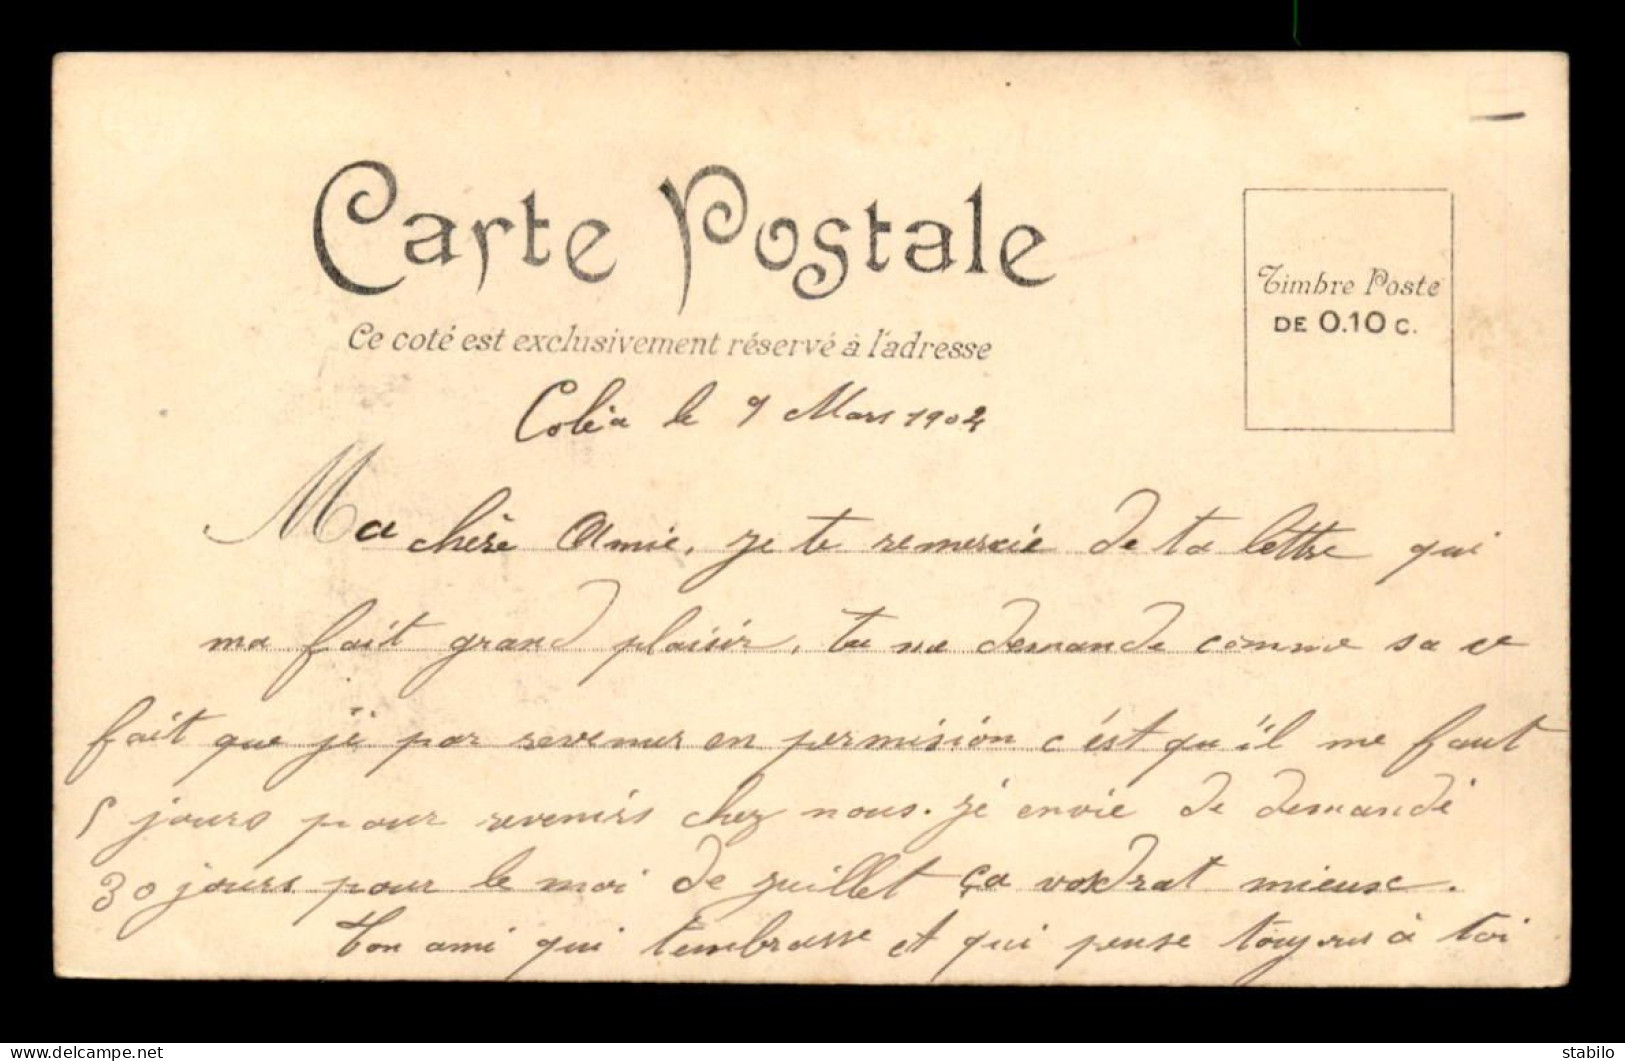 Carte Postale
Ce coté est exclusivement réservé à l'adresse
Timbre Poste
DE 0.10 C.
Coléa le 9 Mars 1904
Ma chère Amie, je te remercie de ta lettre qui
ma fait grand plaisir, tu me demande comme sa se
fait que je par revenus en permision c'est qu'il me faut
5 jours pour revenirs chez nous. jé envie de demandé
30 jours pour le moi de juillet ça vodrat mieux.
Ton ami qui t'embrasse et qui pense toujours à toi
delcampe.net
stabilo